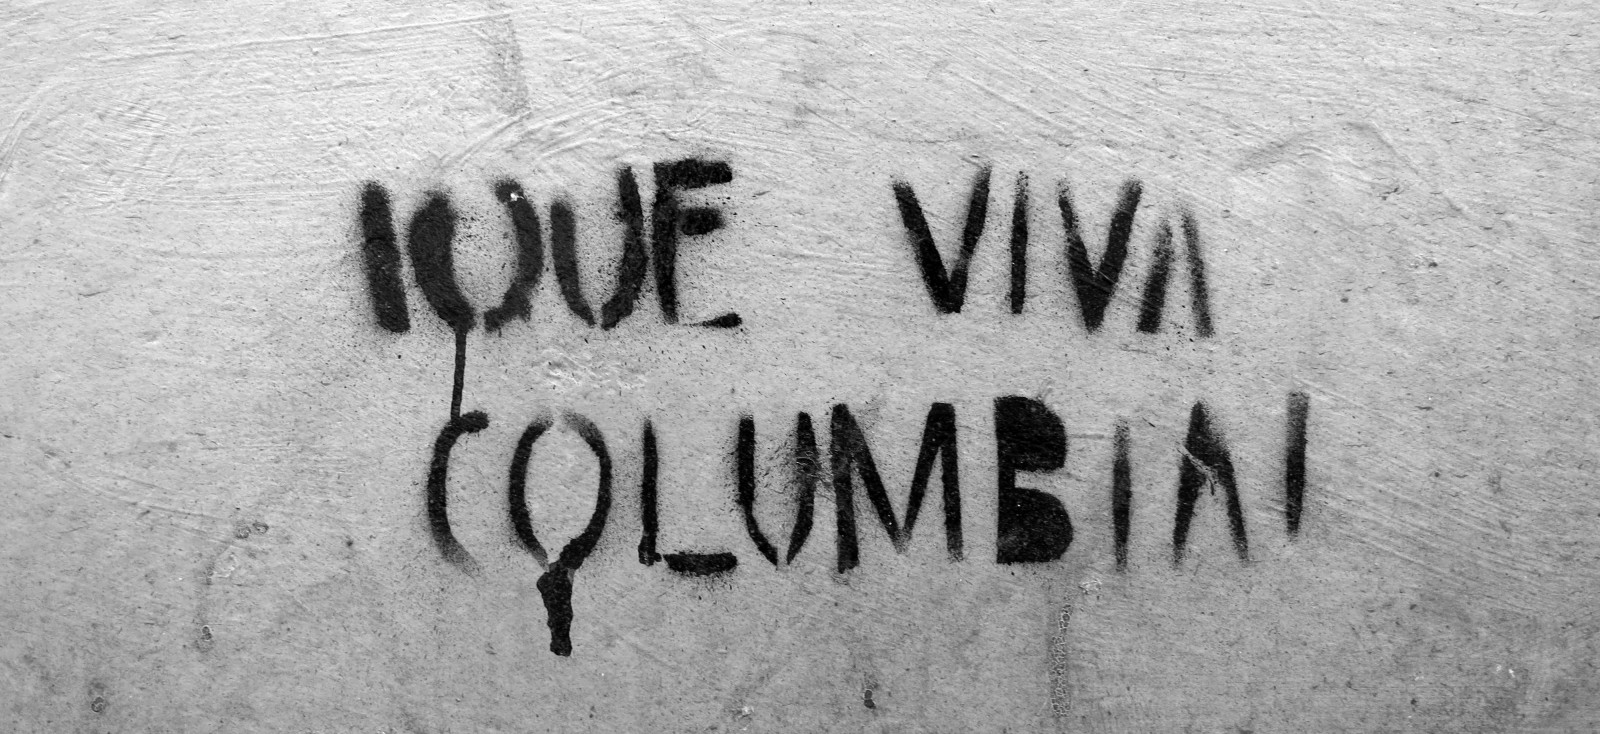 ¡QUE VIVA
COLUMBIA!